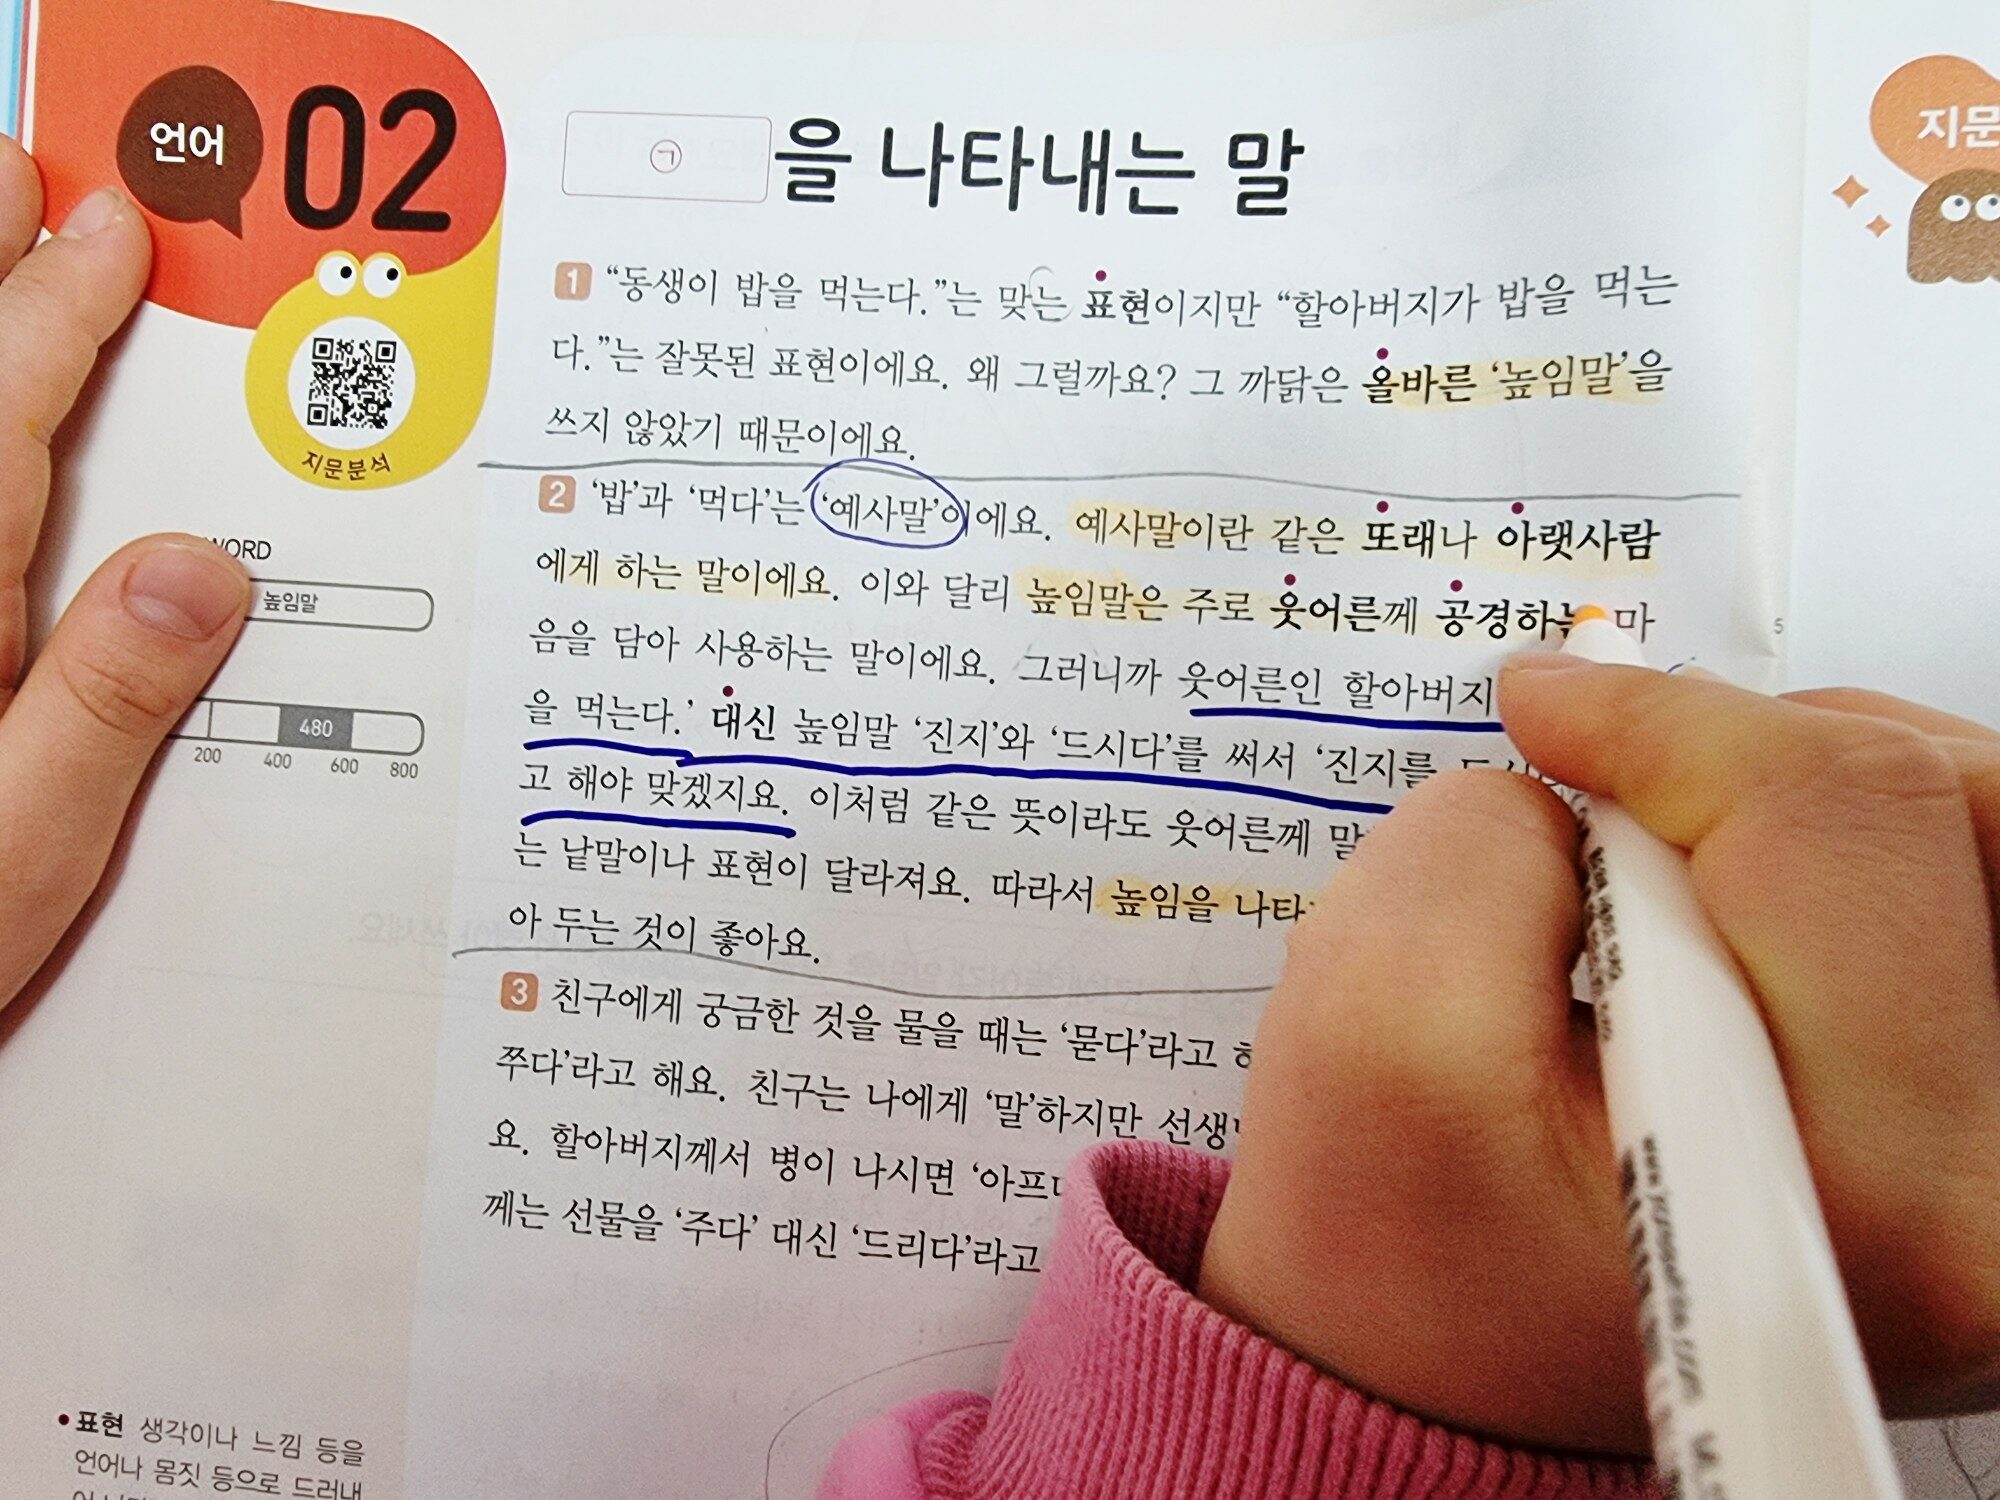 언어 02
㉠ 을 나타내는 말
지문
1 “동생이 밥을 먹는다.”는 맞는 표현이지만 “할아버지가 밥을 먹는
다.”는 잘못된 표현이에요. 왜 그럴까요? 그 까닭은 올바른 ‘높임말’을
쓰지 않았기 때문이에요.
지문분석
2 ‘밥’과 ‘먹다’는 ‘예사말’이에요. 예사말이란 같은 또래나 아랫사람
에게 하는 말이에요. 이와 달리 높임말은 주로 웃어른께 공경하는 마
음을 담아 사용하는 말이에요. 그러니까 웃어른인 할아버지
5
을 먹는다.’ 대신 높임말 ‘진지’와 ‘드시다’를 써서 ‘진지를
고 해야 맞겠지요. 이처럼 같은 뜻이라도 웃어른께 말
는 낱말이나 표현이 달라져요. 따라서 높임을 나타
아 두는 것이 좋아요.
3 친구에게 궁금한 것을 물을 때는 ‘묻다’라고
쭈다’라고 해요. 친구는 나에게 ‘말’하지만 선생
요. 할아버지께서 병이 나시면 ‘아프
께는 선물을 ‘주다’ 대신 ‘드리다’라고
WORD
높임말
480
200 400 600 800
• 표현 생각이나 느낌 등을
언어나 몸짓 등으로 드러내